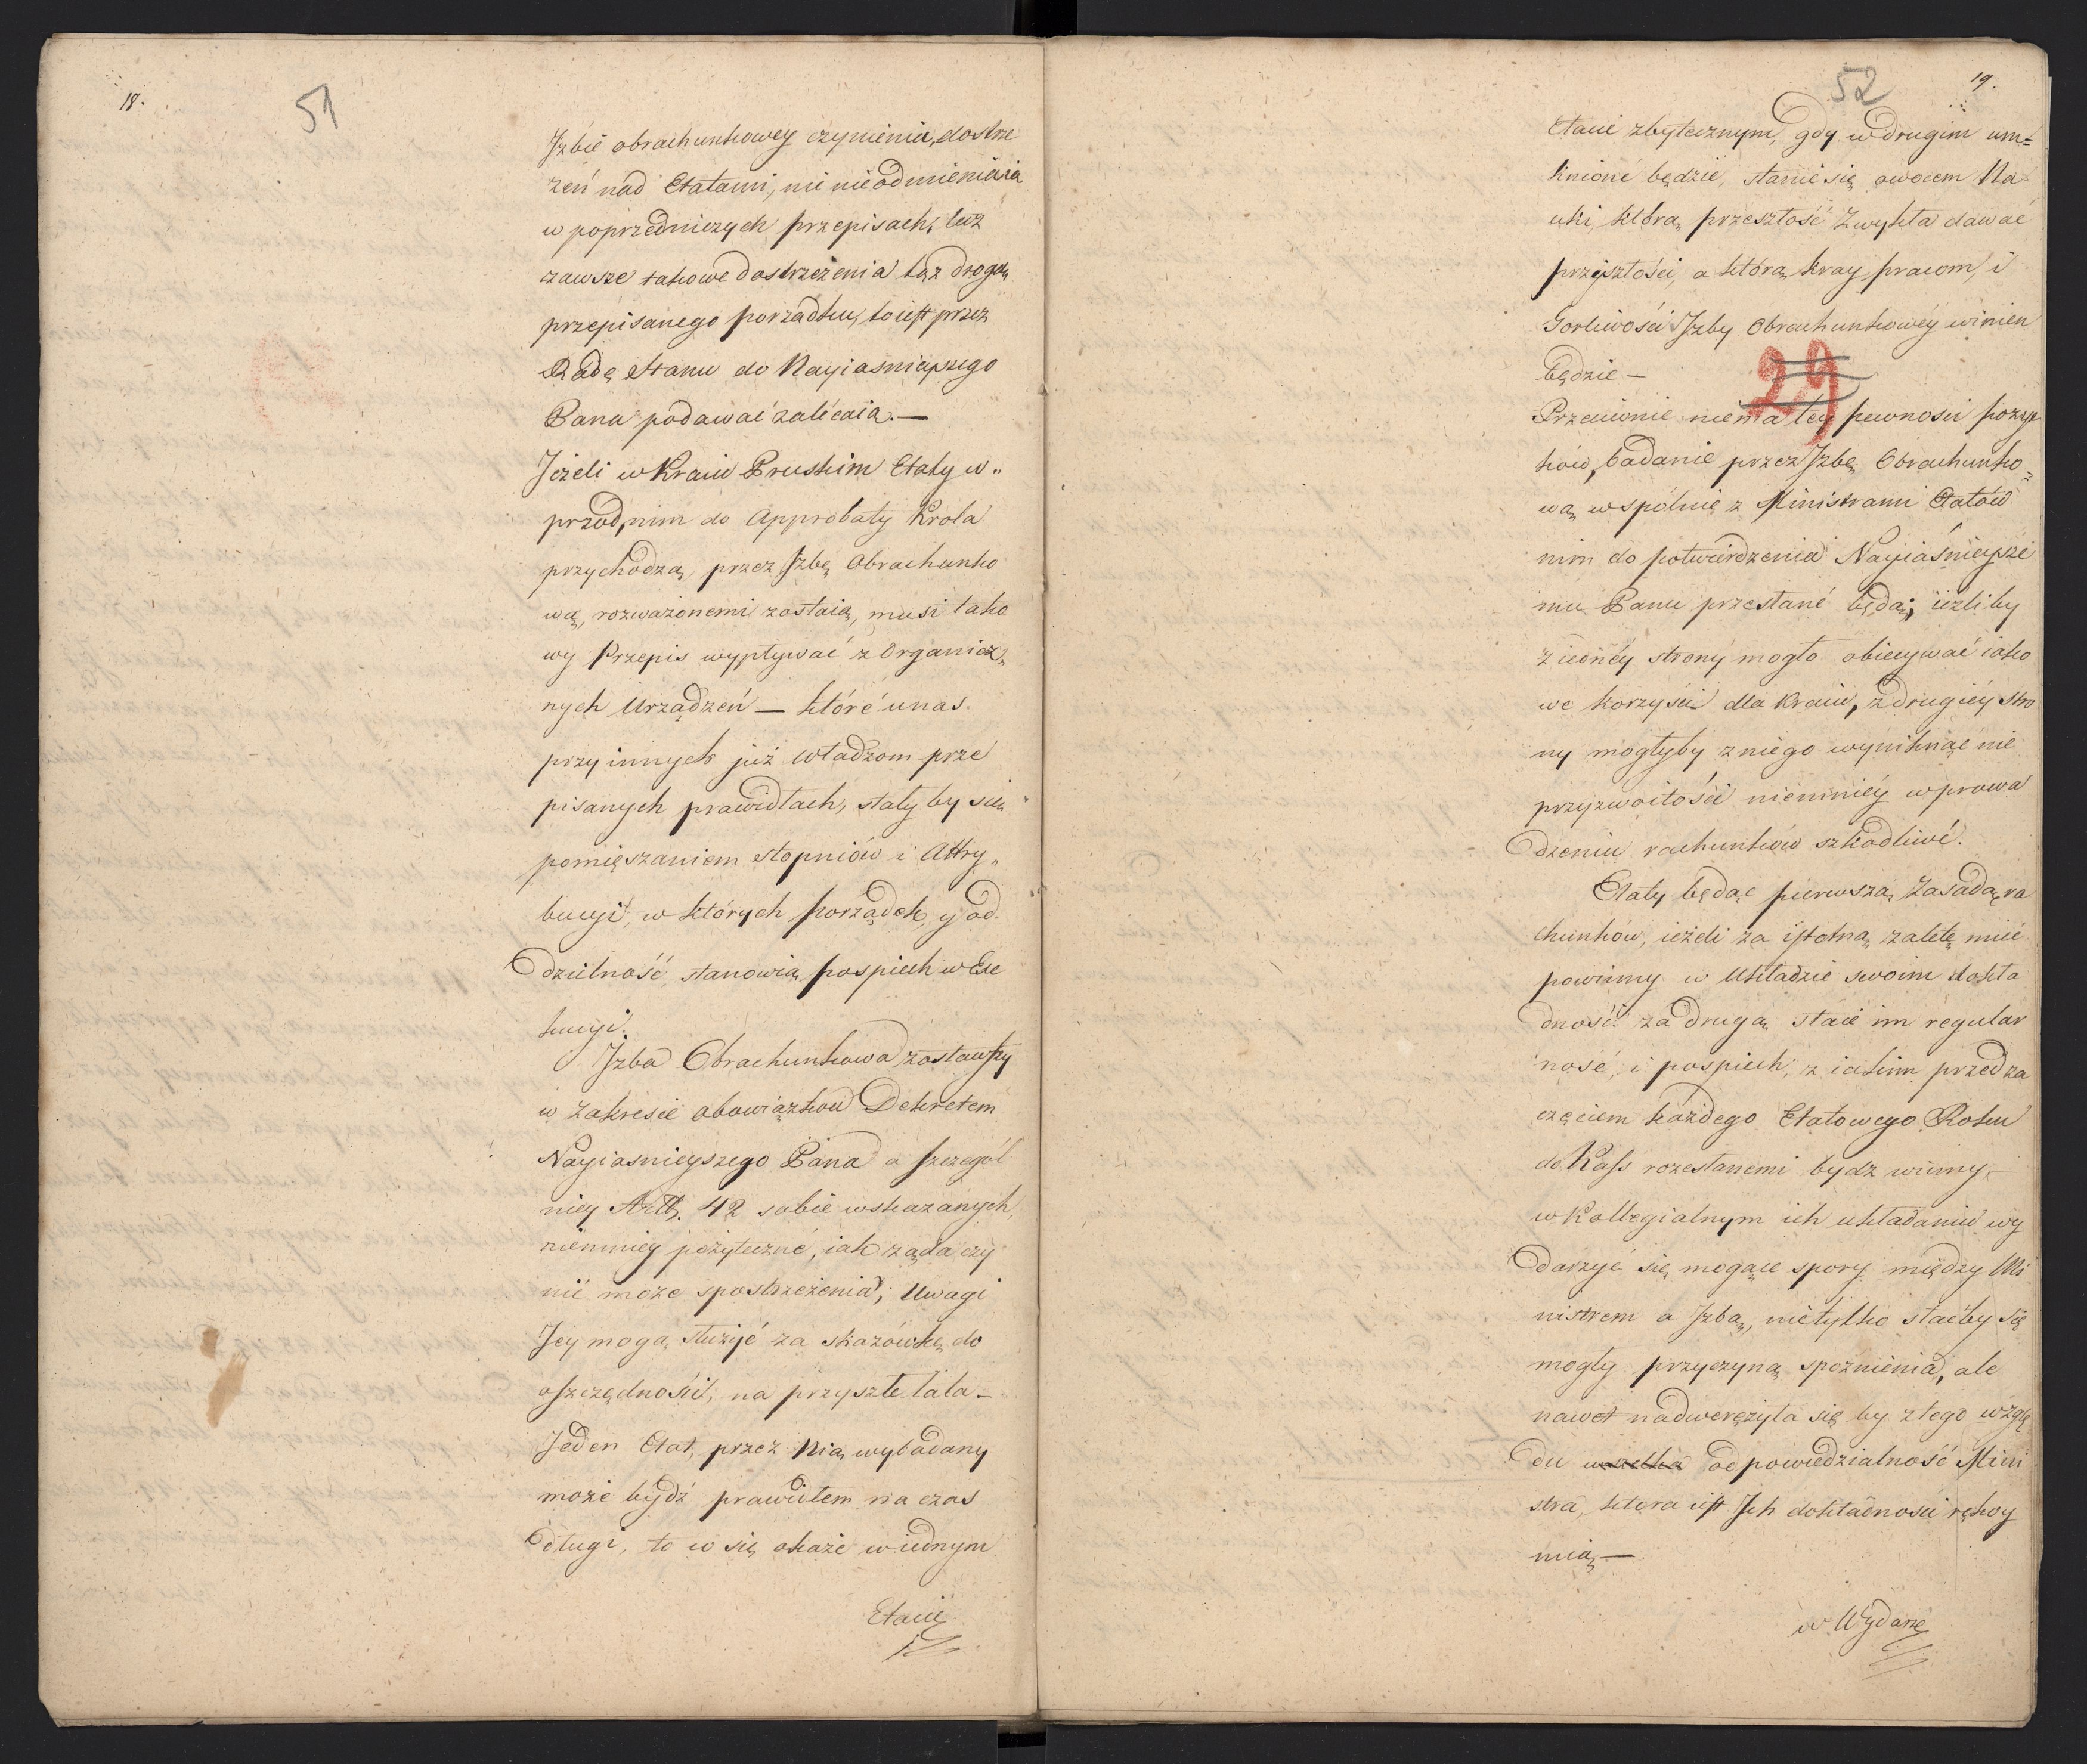 18.
51
Jzbie obrachunkowey czynienia, dostrze
żeń nad Etatami, nic nieodmieniaią
w poprzedniczych przepisach, lecz
zawsze takowe dostrzeżenia tąż drogą
przepisanego porządku, to iest przez
Radę Stanu do Nayiasnieyszego
Pana podawać zalecaią. —
Jeżeli w Kraiu Pruskim Etaty w„
przód, nim do Approbaty Krola
przychodzą, przez Jzbę Obrachunko
wą, rozważonemi zostaią, musi tako
wy Przepis wypływać z Organicz„
nych Urządzeń — któré u nas
przy innych już Władzom prze
pisanych prawidłach, stały by się
pomięszaniem stopniów i Attry„
bucyi, w których porządek, y od
dzielność stanowią pospiech w Exe
kucyi.
Jzba Obrachunkowa zostawszy
w Zakresie obowiązków Dekretem
Nayiasnieyszego Pana a szczegól
niey Artt. 42 sobie wskazanych
niemniey pożyteczné, iak żąda czy
nić może spostrzeżenia; Uwagi
Jey mogą służyć za skazówkę do
oszczędności, na przyszłe lata —
Jeden Etat, przez Nią wybadany
może bydź prawidłem na czas
długi, to w się okaże w iednym
Etacie
52
19.
Etacie zbytecznym, gdy w drugim um=
knioné będzie, stanie się owocem Na
uki, którą przeszłość zwykła dawać
przyszłości, a którą kray pracom, i
Gorliwości Jzby Obrachunkowéy winien
będzie —
29
Przeciwnie niema tey pewnosci pożyt
ków, badanie przez Jzbę Obrachunko=
wą wspólnie z Ministrami Etatów
nim do potwierdzenia Nayiaśnieysze
mu Panu przesłané będą; ieżliby
z iednéy strony mogło obiecywać iako
we korzyści dla Kraiu, z drugiéy stro
ny mogłyby z niego wyniknąć nie
przyzwoitości niemniéy w prowa
dzeniu rachunków szkodliwé.
Etaty będąc pierwszą zasadą ra
chunków, ieżeli za istotną zaletę mieć
powinny w Układzie swoim dokła
dność za drugą staie im regular
ność, i pospiech, z iakim przed za
częciem każdego Etatowego Roku
do Kass rozesłanemi bydz winny —
w Kollegialnym ich układaniu wy
darzyć się mogące spory między Mi
nistrem a Jzbą, nietylko staćby się
mogły przyczyną spoznienia, ale
nawet nadwerężyła się by z tego wzglę
du wszelka odpowiedzialność Mini
stra, która iest Jch dokładności rękoy
mią —
w Wydarze